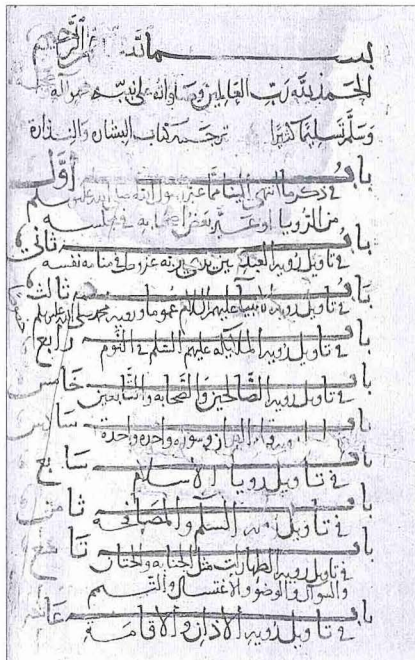 بسم الله الرحمن الرحيم
الحمد لله رب العالمين وصلواته على نبيه محمد وآله
وسلم تسليما كثيرا ترجمه كتاب البشارة والنذارة
باب أول
في ذكر ما انتهى الينا مما عبره رسول الله صلى الله عليه وسلم
من الرؤيا او عبر بعض اصحابه في مجلسه
باب ثاني
في تاويل رويه العبد بين يدي ربه عز وجل في منامه نفسه
باب ثالث
في تاويل رويه الانبيا عليهم السلام عموما ورويه محمد صلى الله عليه وسلم
باب رابع
في تاويل رويه الملائكه عليهم السلم في النوم
باب خامس
في تاويل رويه الصالحين والصحابه والتابعين
باب سادس
القران وسوره واحده واحده
باب سابع
في تاويل رويا الاسلام
باب ثامن
في تاويل السلم والمصافحه
باب تاسع
في تاويل رويه الطهارات مثل الجنابه والختان
والسواك والوضو والاغتسال والتيمم
باب عاشر
في تاويل رويه الاذان والاقامة